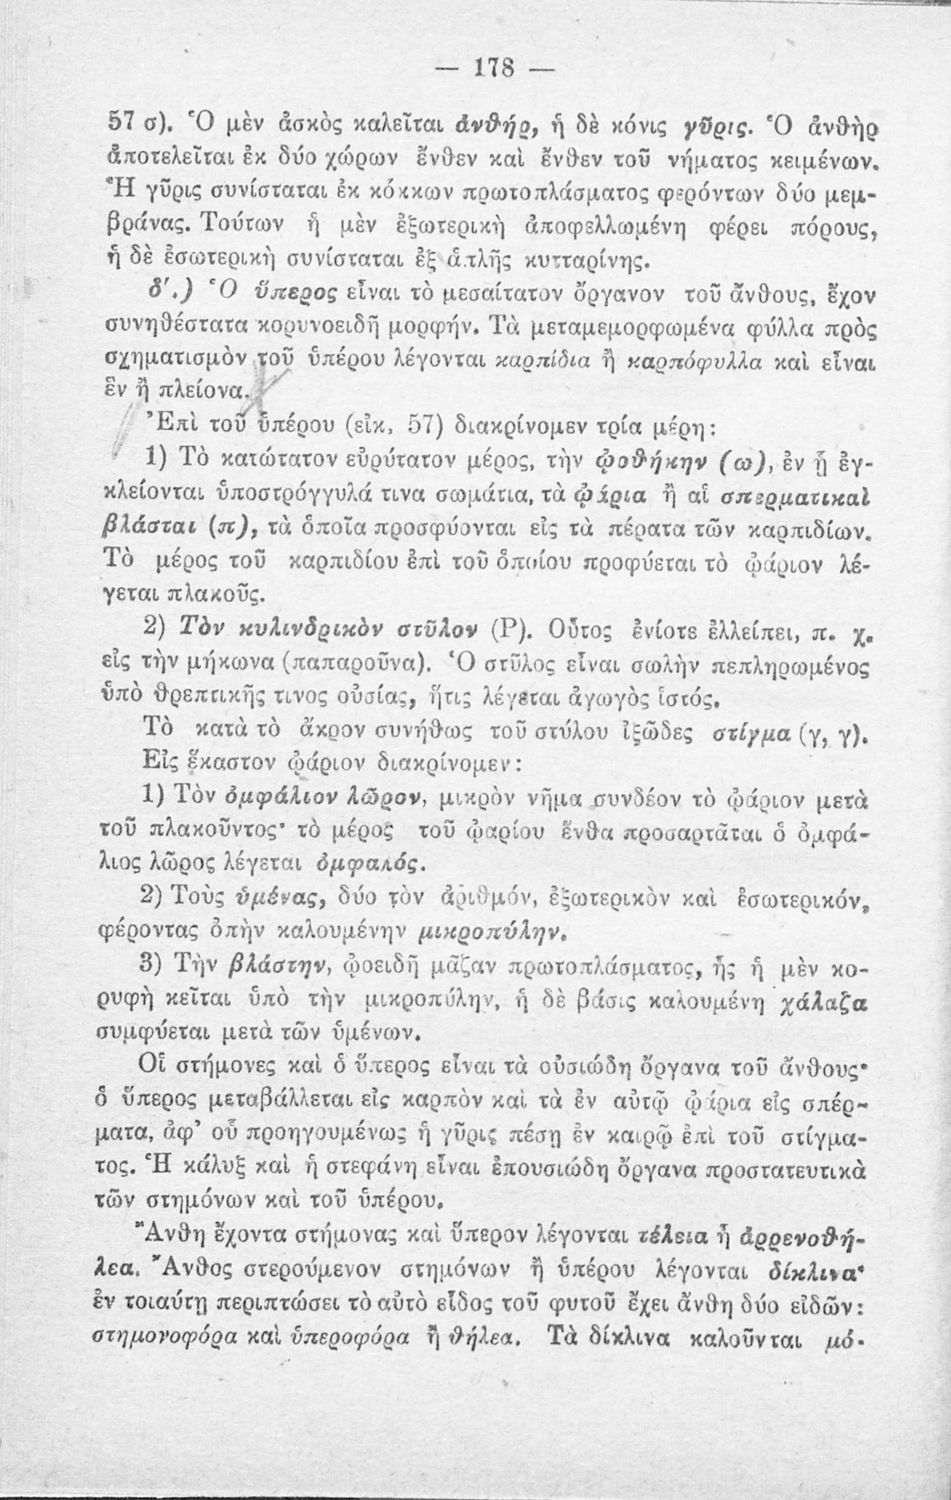 — 178 —
57 σ). Ὁ μὲν ἀσκὸς καλεῖται ἀνθήρ, ἡ δὲ κόνις γῦρις. Ὁ ἀνθὴρ
ἀποτελεῖται ἐκ δύο χώρων ἔνθεν καὶ ἔνθεν τοῦ νήματος κειμένων.
Ἡ γῦρις συνίσταται ἐκ κόκκων πρωτοπλάσματος φερόντων δύο μεμ-
βράνας. Τούτων ἡ μὲν ἐξωτερικὴ ἀποφελλωμένη φέρει πόρους,
ἡ δὲ ἐσωτερικὴ συνίσταται ἐξ ἁπλῆς κυτταρίνης.
δ΄.) Ὁ ὕπερος εἶναι τὸ μεσαίτατον ὄργανον τοῦ ἄνθους, ἔχον
συνηθέστατα κορυνοειδῆ μορφήν. Τὰ μεταμεμορφωμένα φύλλα πρὸς
σχηματισμὸν τοῦ ὑπέρου λέγονται καρπίδια ἢ καρπόφυλλα καὶ εἶναι
ἓν ἢ πλείονα.
Ἐπὶ τοῦ ὑπέρου (εἰκ. 57) διακρίνομεν τρία μέρη:
1) Τὸ κατώτατον εὐρύτατον μέρος, τὴν ᾠοθήκην (ω), ἐν ᾗ ἐγ-
κλείονται ὑποστρόγγυλά τινα σωμάτια, τὰ ᾠάρια ἢ αἱ σπερματικαὶ
βλάσται (π), τὰ ὁποῖα προσφύονται εἰς τὰ πέρατα τῶν καρπιδίων.
Τὸ μέρος τοῦ καρπιδίου ἐπὶ τοῦ ὁποίου προφύεται τὸ ᾠάριον λέ-
γεται πλακοῦς.
2) Τὸν κυλινδρικὸν στῦλον (Ρ). Οὗτος ἐνίοτε ἐλλείπει, π. χ.
εἰς τὴν μήκωνα (παπαροῦνα). Ὁ στῦλος εἶναι σωλὴν πεπληρωμένος
ὑπὸ θρεπτικῆς τινος οὐσίας, ἥτις λέγεται ἀγωγὸς ἱστός.
Τὸ κατὰ τὸ ἄκρον συνήθως τοῦ στύλου ἰξῶδες στίγμα (γ, γ).
Εἰς ἕκαστον ᾠάριον διακρίνομεν:
1) Τὸν ὀμφάλιον λῶρον, μικρὸν νῆμα συνδέον τὸ ᾠάριον μετὰ
τοῦ πλακοῦντος· τὸ μέρος τοῦ ᾠαρίου ἔνθα προσαρτᾶται ὁ ὀμφά-
λιος λῶρος λέγεται ὀμφαλός.
2) Τοὺς ὑμένας, δύο τὸν ἀριθμόν, ἐξωτερικὸν καὶ ἐσωτερικόν,
φέροντας ὀπὴν καλουμένην μικροπύλην.
3) Τὴν βλάστην, ᾠοειδῆ μᾶζαν πρωτοπλάσματος, ἧς ἡ μὲν κο-
ρυφὴ κεῖται ὑπὸ τὴν μικροπύλην, ἡ δὲ βάσις καλουμένη χάλαζα
συμφύεται μετὰ τῶν ὑμένων.
Οἱ στήμονες καὶ ὁ ὕπερος εἶναι τὰ οὐσιώδη ὄργανα τοῦ ἄνθους·
ὁ ὕπερος μεταβάλλεται εἰς καρπὸν καὶ τὰ ἐν αὐτῷ ᾠάρια εἰς σπέρ-
ματα, ἀφ' οὗ προηγουμένως ἡ γῦρις πέσῃ ἐν καιρῷ ἐπὶ τοῦ στίγμα-
τος. Ἡ κάλυξ καὶ ἡ στεφάνη εἶναι ἐπουσιώδη ὄργανα προστατευτικὰ
τῶν στημόνων καὶ τοῦ ὑπέρου.
Ἄνθη ἔχοντα στήμονας καὶ ὕπερον λέγονται τέλεια ἢ ἀρρενοθή-
λεα. Ἄνθος στερούμενον στημόνων ἢ ὑπέρου λέγονται δίκλινα·
ἐν τοιαύτῃ περιπτώσει τὸ αὐτὸ εἶδος τοῦ φυτοῦ ἔχει ἄνθη δύο εἰδῶν:
στημονοφόρα καὶ ὑπεροφόρα ἢ θήλεα. Τὰ δίκλινα καλοῦνται μό-